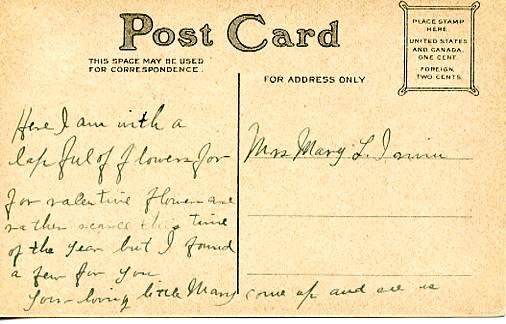 Post Card
THIS SPACE MAY BE USED
FOR CORRESPONDENCE.
FOR ADDRESS ONLY
PLACE STAMP
HERE
UNITED STATES
AND CANADA,
ONE CENT.
FOREIGN,
TWO CENTS.
Here I am with a
lap ful of flowers for
for valentine flowers are
rather scarce this time
of the year but I found
a few for you
Your loving little Mary come up and see us
Mrs Mary L.